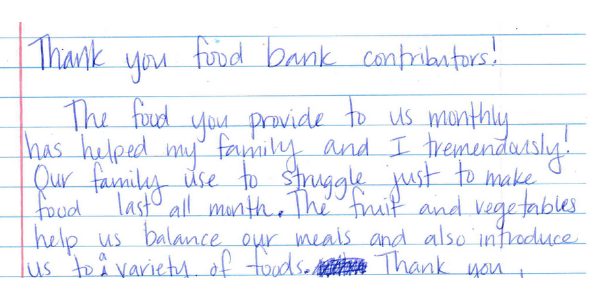 Thank you food bank contributors!
The food you provide to us monthly
has helped my family and I tremendously!
Our family use to struggle just to make
food last all month. The fruit and vegetables
help us balance our meals and also introduce
us to a variety of foods. Thank you,